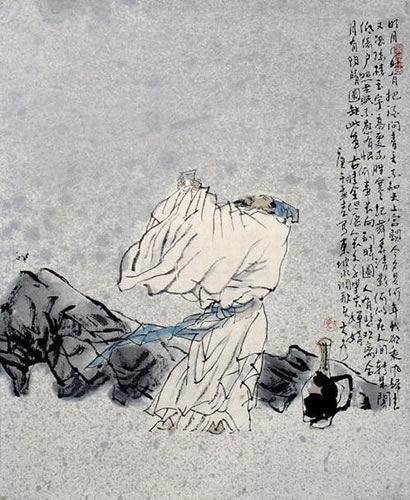 明月幾時有把酒問青天不知天上宮闕今夕是何年我欲乘風歸去
又恐瓊樓玉宇高處不勝寒起舞弄清影何似在人間轉朱閣
低綺戶照無眠不應有恨何事長向別時圓人有悲歡離合
月有陰晴圓缺此事古難全但願人長久千里共嬋娟
庚午寫東坡水調歌頭